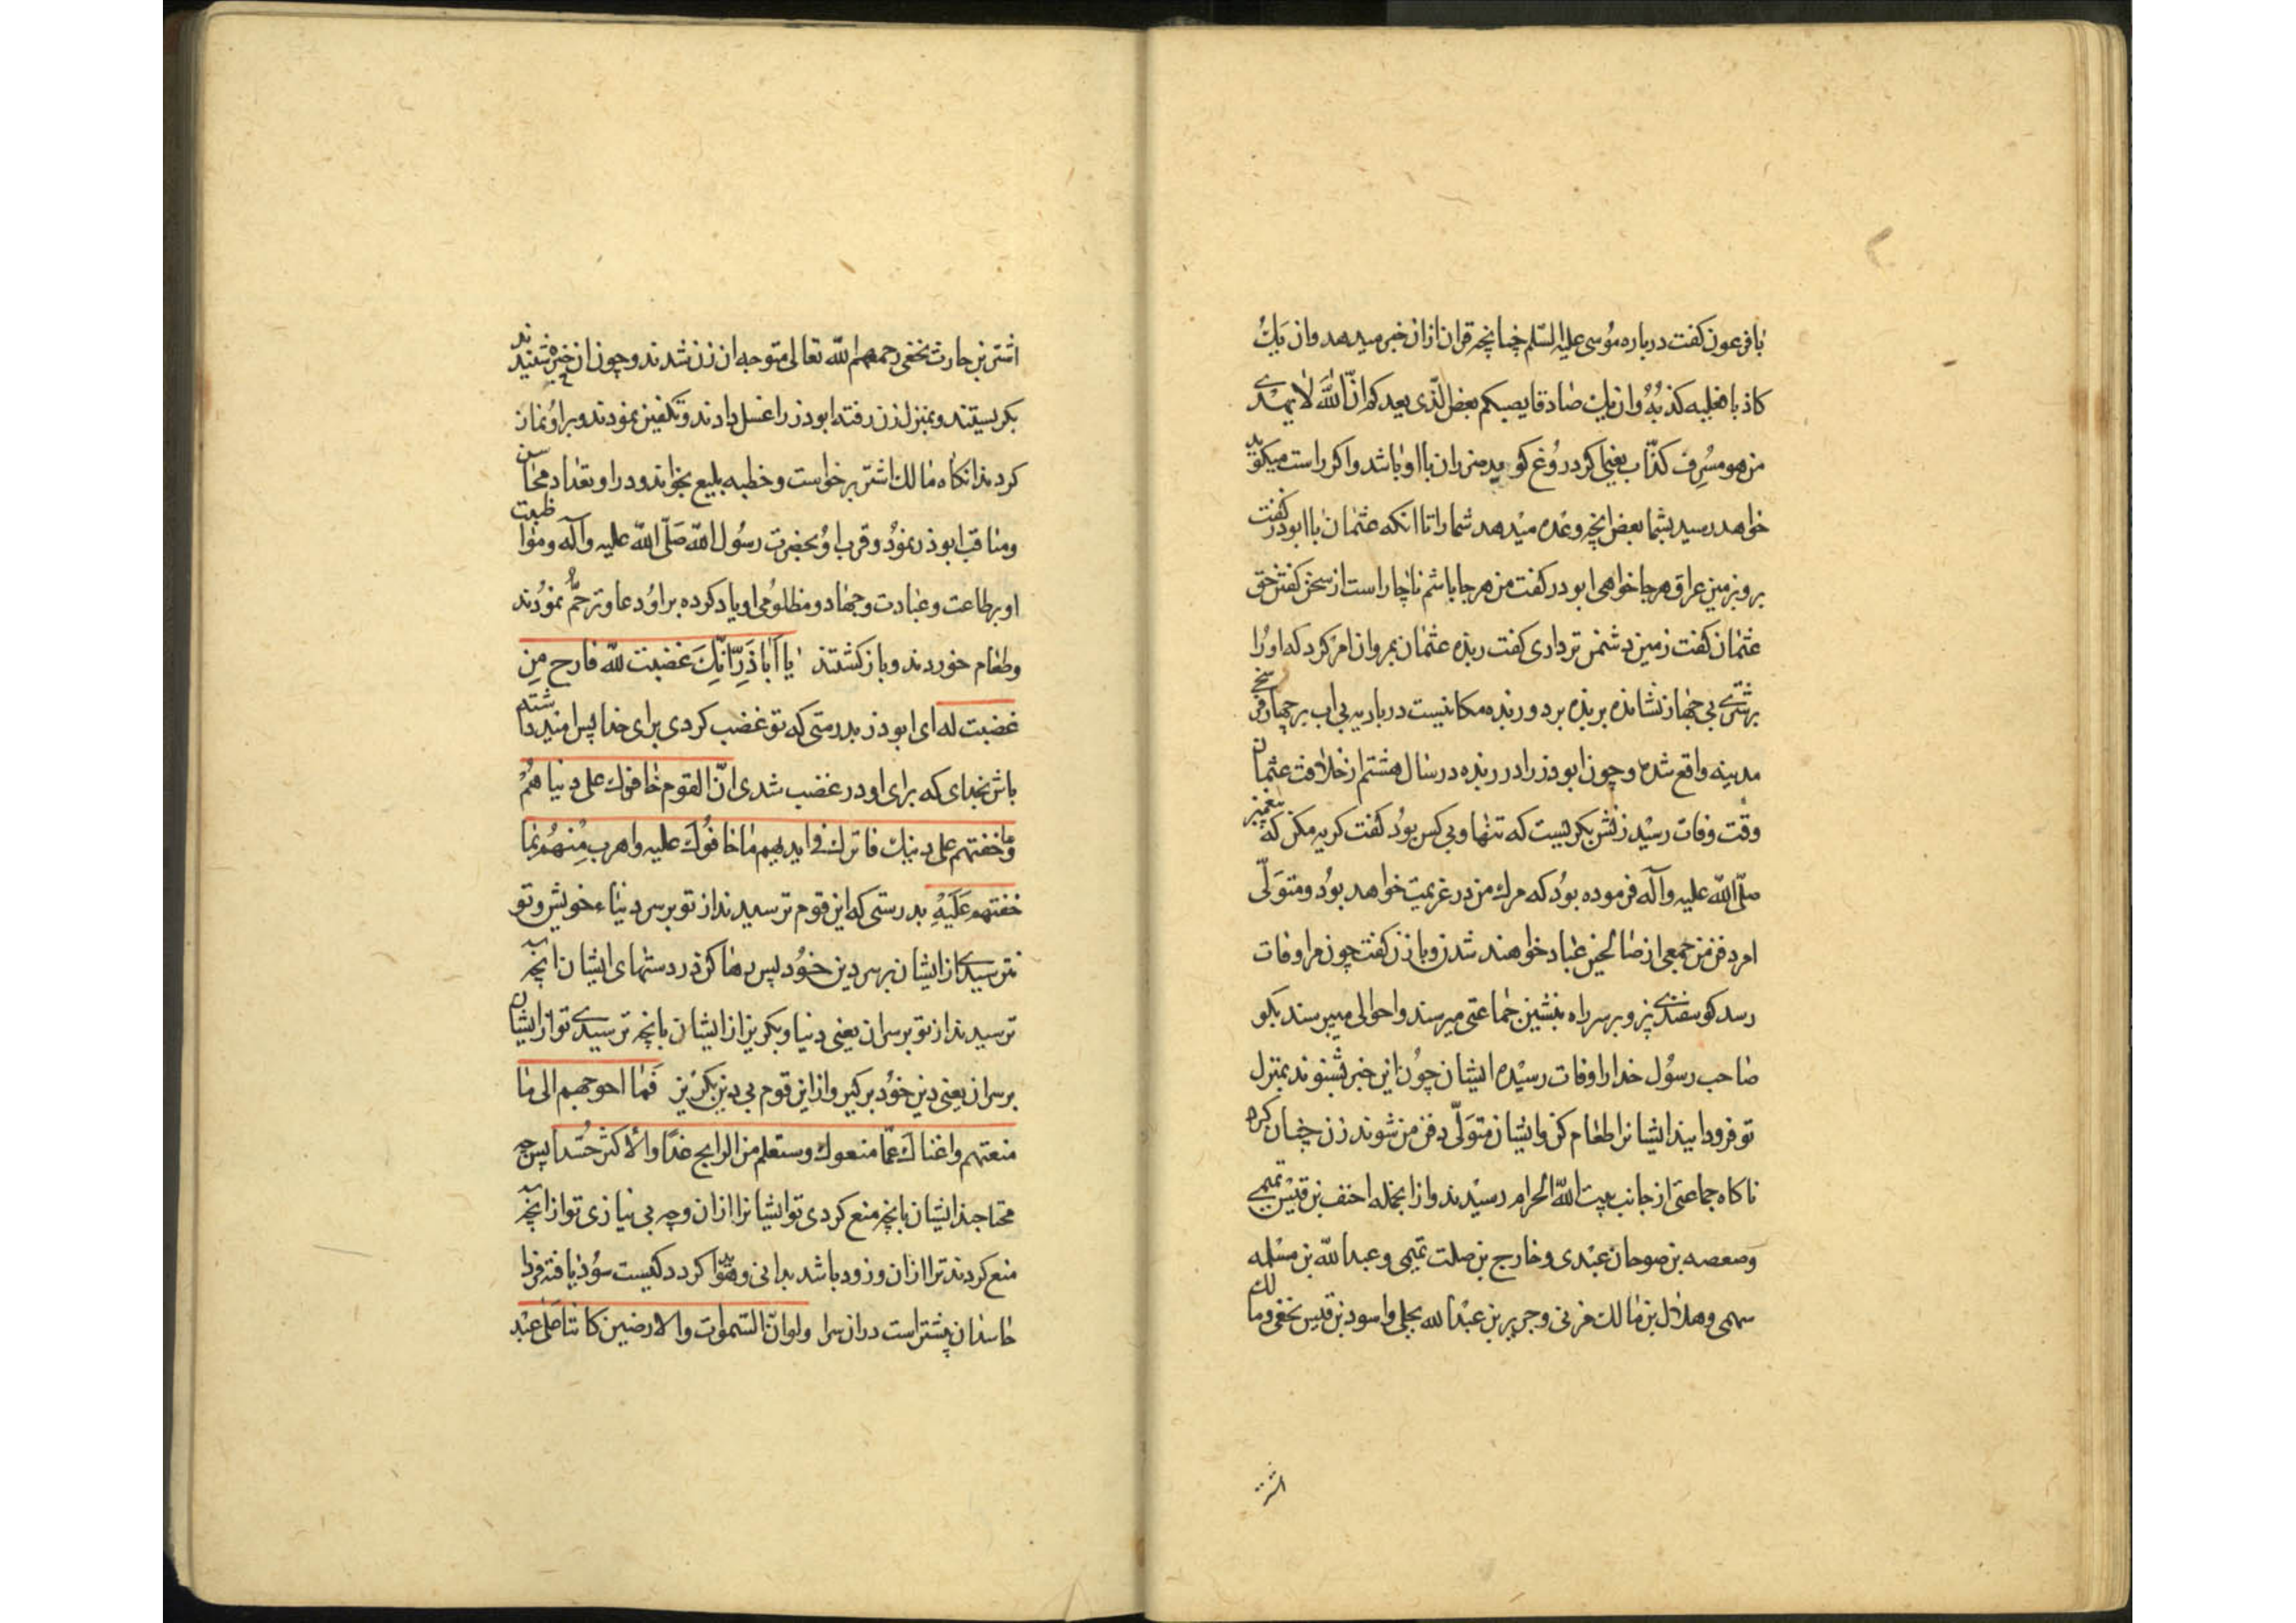 با فرعون کفت درباره مُوسی علیه السّلم چنانچه قران ازان خبر میدهد وان یَکُ
کاذبا فعلیه کذبُهُ وان یک صادقا یصبکم بعض الّذی یعدکم انّ اللّهَ لا یهدی
من هو مسُرِف کذّاب یعنی اکر دروُغ کوید ضرر ان با او باشد و اکر راست میکوید
خواهد رسید بشما بعض انچه وعده میدهد شما را تا انکه عثمان با ابوذر کفت
برو بزمین عراق هرجا خواهی ابوذر کفت من هرجا باشم ناچار است از سخن کفتن حق
عثمان کفت زمین دشمن تر داری کفت ربذه عثمان بمروان امر کرد که اورُا
بر شتری بی جهاز نشانده بربذه برد و ربذه مکانیست در بادیه بی اب بر چهار فرسخی
مدینه واقع شده و چون ابوذر را در ربذه در سال هشتم از خلافت عثمان
وقت وفات رسیْد زنش بکریست که تنها و بی کس بوُد کفت کریه مکن که پیغمبر
صلّی اللّه علیه وآله فرموده بوُد که مرک من در غربت خواهد بوُد ومتوَلّی
امر دفن من جمعی از صالحین عباد خواهند شد و با زن کفت چون مرا وفات
رسد کوسفندی پز و بر سر راه بنشین جماعتی میرسند و احوالی میپرسند بکو
صاحب رسوُل خدا را وفات رسیْده ایشان چوُن این خبر بشنوند بمنزل
تو فرود ایند ایشانرا طعام کن وایشان متوَلّی دفن من شوند زن چنان کرد
ناکاه جماعتی از جانب بیت اللّه الحرام رسیْدند و از انجمله احنف بن قیْس تمیمی
وصعصه بن صوحان عبْدی و خارج بن صلت تمیمی و عبد اللّه بن مسْلمه
سهمی و هلال بن مالک مزنی و جریر بن عبْد الله بجلی و اسود بن قیس نخعی ومالک
اشتر
اشتر بن حارث نخعی رحمهم اللّه تعالی متوجه ان زن شدند و چون ان خبر شنیدند
بکریستند و بمنزل زن رفته ابوذر را غسل دادند و تکفین نمودند و براوُ نماز
کردند انکاه مالک اشتر برخواست و خطبه بلیع بخواند و در او تعداد محاسن
ومناقب ابوذر نموُد و قرب اوُ بحضرت رسُول اللّه صَلّی اللّه علیه وآله ومواظبت
او بر طاعت و عبادت و جهاد و مظلوُمی او یاد کرده بر اوُ دعا و ترحّم نموُدند
وطعام خوردند و باز کشتند یا اَبا ذَرِّ انِّکَ غضبت للّه فارح مِن
غضبت له ای ابوذر بدرستی که تو غضب کردی برای خدا پس امیْد داشته
باش بخدای که برای او در غضب شدی انّ القوم خافوک علی دنیاهُمْ
وما خفتهم علی دینک فاترک فی ایدیهم ما خافُوکَ علیه واهرب مِنهُم بما
خفتهم عَلَیْهِ بدرستی که این قوم ترسیدند از تو بر سر دنیاء خویش و تو
نترسیدی از ایشان بر سر دین خوُد پس رها کن در دستهای ایشان انچه
ترسیدند از تو بر سر ان یعنی دنیا وبکریز از ایشان بانچه ترسیدی تو از ایشان
بر سر ان یعنی دین خوُد برکیر و از این قوم بی دین بکرْیز فَما احوجهم الی ما
منعتهم واغناکَ عمّا منعوک وستعلم من الرابح غدًا والاکثر حُسّدا پس چه
محتاجند ایشان بانچه منع کردی تو ایشانرا ازان وچه بی نیازی تو از انچه
منع کردند ترا ازان و زود باشد بدانی و هوّیدا کردد کیست سوُد یافته فردا
حاسدان بیشتر است دران سرا ولو انّ السّموات والارضین کانتا عَلی عبْد